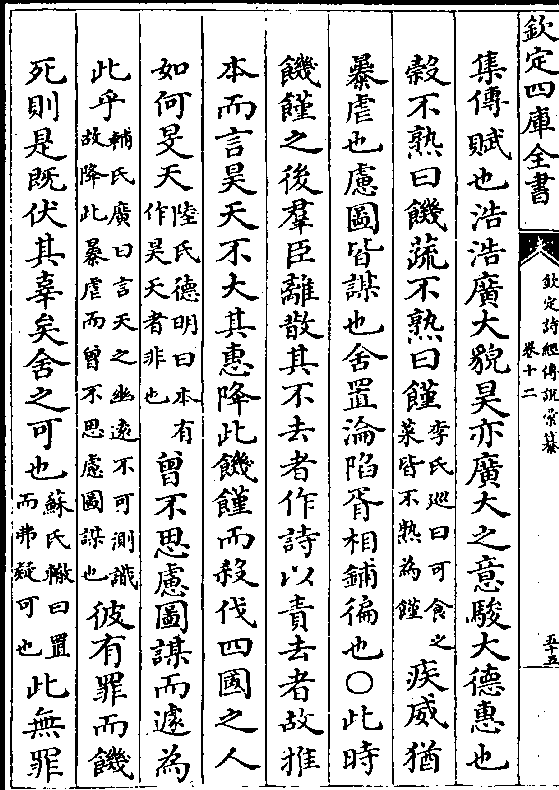 欽定四庫全書
欽定詩經傳說彙纂
卷十二
五十五
集傳賦也浩浩廣大貌昊亦廣大之意駿大德惠也
穀不熟曰饑蔬不熟曰饉李氏巡曰可食之菜皆不熟為饉疾威猶
暴虐也慮圖皆謀也舍置淪陷胥相鋪徧也○此時
饑饉之後羣臣離散其不去者作詩以責去者故推
本而言昊天不大其惠降此饑饉而殺伐四國之人
如何旻天陸氏德明曰本有作昊天者非也曾不思慮圖謀而遽為
此乎輔氏廣曰言天之幽遠不可測識故降此暴虐而曾不思慮圖謀也彼有罪而饑
死則是既伏其辜矣舍之可也蘇氏轍曰置而弗疑可也此無罪